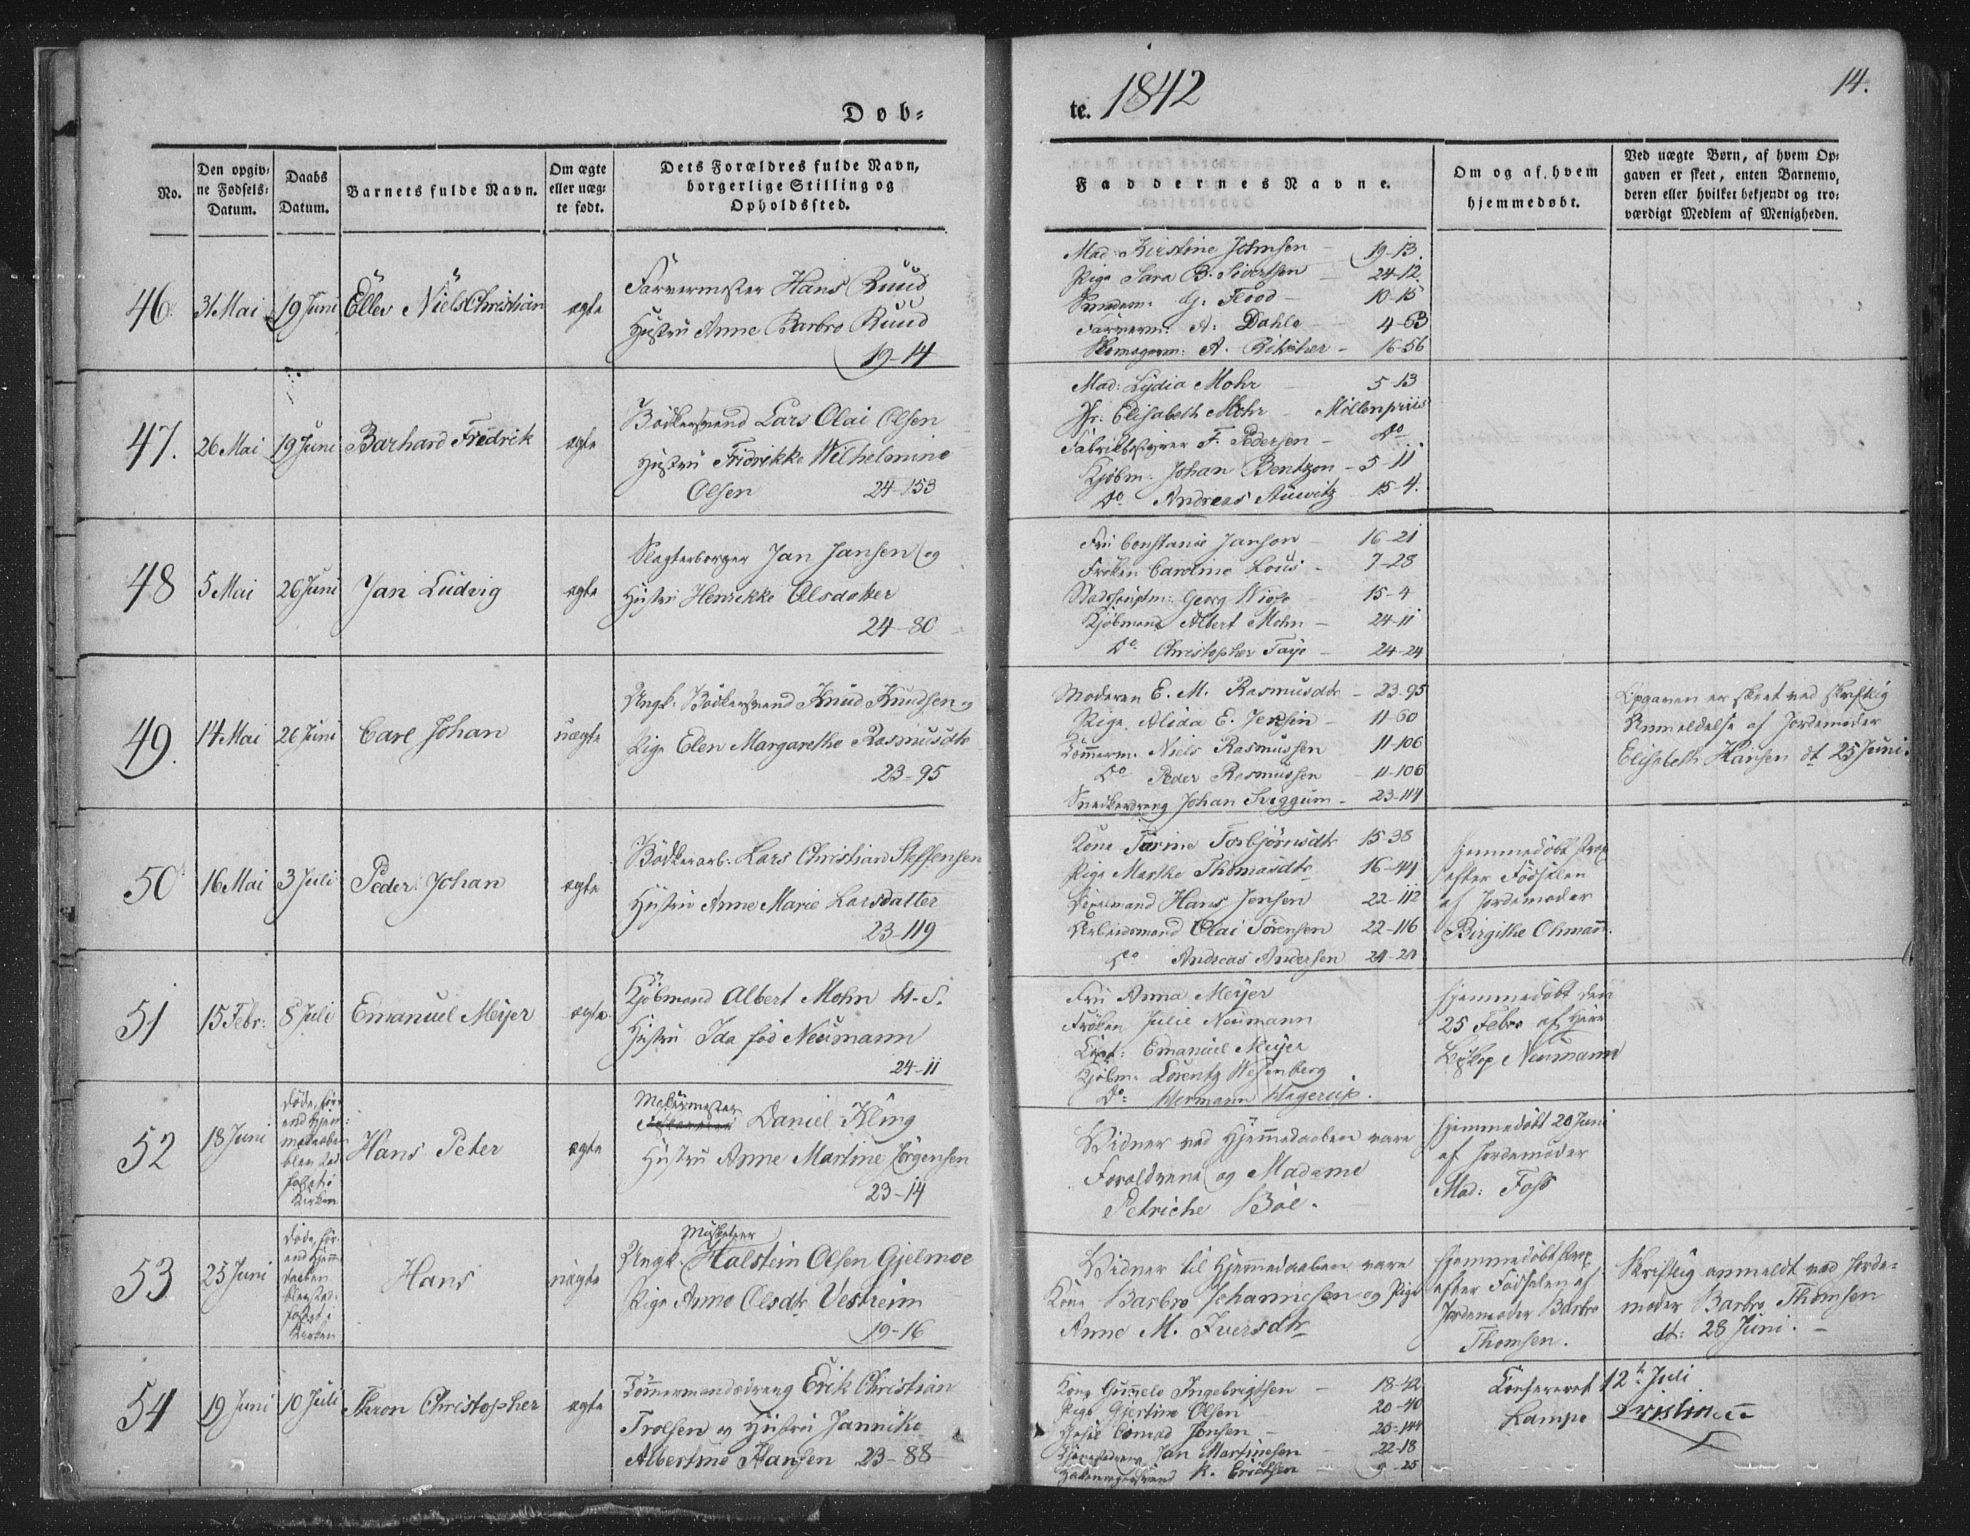 Døb-
te. 1842
14.
No.
Den opgiv-
ne Fødsels-
Datum.
Daabs
Datum.
Barnets fulde Navn.
Om ægte
eller uæg-
te født.
Dets Forældres fulde Navn,
borgerlige Stilling og
Opholdssted.
Faddernes Navne.
Om og af hvem
hjemmedøbt.
Ved uægte Børn, af hvem Op-
gaven er skeet, enten Barnemo-
deren eller hvilket bekjendt og tro-
værdigt Medlem af Menigheden.
46.
31 Mai
19 Juni
Eller Niels Christian
ægte
Farvermester Hans Ruud
Hustru Anne Barbro Ruud
19-14
Mad: Kirstine Johnsen - 19-13.
Pige Sara B. Sivertsen - 24-12
G: Flood - 10-15
Farverm: A: Dahle - 4-63
Skomagerm: A. - 16-56
47.
26 Mai
19 Juni
Barhard Fredrik
ægte
Bödkersvend Lars Olai Olsen
Hustru Fridrikke Wilhelmine
Olsen 24-153
Mad: Lydia Mohr - 5-13
Jfr: Elisabeth Mohr - Möllenpriis
F. Pedersen - do
Kjöbm: Johan Bentzon - 5-11
do Andreas 15-4.
48
5 Mai
26 Juni
Jan Ludvig
ægte
Slagterborger Jan Jansen og
Hustru Henrikke Alsdaker
24-80
Fru Constance Janson - 16-21
Frøken Caroline Lous - 7-28
Georg 15-4
Kjöbmand Albert Mohn - 24-11
do Christopher Faye - 24-24
49.
14 Mai
26 Juni
Carl Johan
uægte
Ungk. Bödkersvend Knud Knudsen og
Pige Elen Margarethe Rasmusdtr
23-95
Moderen E. M. Rasmusdtr - 23-95
Pige Alida E. Jensin - 11-60
Tömmerm. Niels Rasmussen 11-106
do Peder Rasmussen - 11-106
Snedkerdreng Johan Sviggum - 23-114
Opgaven er skeet ved skriftlig
Anmeldelse af Jordemoder
Elisabeth Hansen dt 25 Juni.
50
16 Mai
3 Juli
Peder Johan
ægte
Bödkerarb: Lars Christian Steffensen
Hustru Anne Marie Larsdatter
23-119
Kone Torine Torbjörnsdtr 15-38
Pige Marthe Thomasdtr 16-44
Hans Jensen 22-112
Arbeidsmand Olai Sörensen 22-116
do Andreas Andersen 24-24
Hjemmedöbt strax
efter Födselen
af Jordemoder
Birgithe Ohmann.
51
15 Febr:
8 Juli
Emanuel Meyer
ægte
Kjöbmand Albert Mohn A. S.
Hustru Ida föd Neumann
24-11
Fru Anna Meyer
Fröken Julie Neumann
Emanuel Meyer
Kjöbm. Lorentz Wesenberg
do: Herman Hagerup.
Hjemmedöbt den
25 Febr af Herr
Biskop Neumann
52
18 Juni
döde, för-
end Hjem-
medaaben
blev stad-
fæstet i
Kirken
Hans Peter
ægte
Daniel Kling
Hustru Anne Martine Jörgensen
23-14
Vidner ved Hjemmedaaben vare
Forældrene og Madame
Petriche Böe.
Hjemmedöbt 20 Juni
af Jordemoder
Mad: Foss
53
25 Juni
döde, för-
end Hjemme-
daaben
blev stad-
fæstet i
Kirken
Hans
uægte
Musketeer
Ungk. Halstein Olsen Gjelmoe
Pige Anne Olsdtr Vestreim
19-16
Vidner til Hjemmedaaben vare
Kone Barbro Johannesen og Pige
Anne M. Iversdtr
Hjemmedöbt strax
efter Födselen af
Jordemoder Barbro
Thomsen.
Skriftlig anmeldt ved Jorde-
moder Barbro Thomsen
dt: 28 Juni. -
54
19 Juni
10 Juli
Aaron Christopher
ægte
Tömmermandsdreng Erik Christian
Trolsen og Hustru Jannike
Albertine Hansen 23-88
Kone Gunnele Ingebrigtsen - 18-42
Pige Gjertine Olsen - 20-40
Conrad Jensen - 20-144
Jan Martinesen - 22-18
K. Ericksen - 9-25
Confereret 12te Juli
Lampe